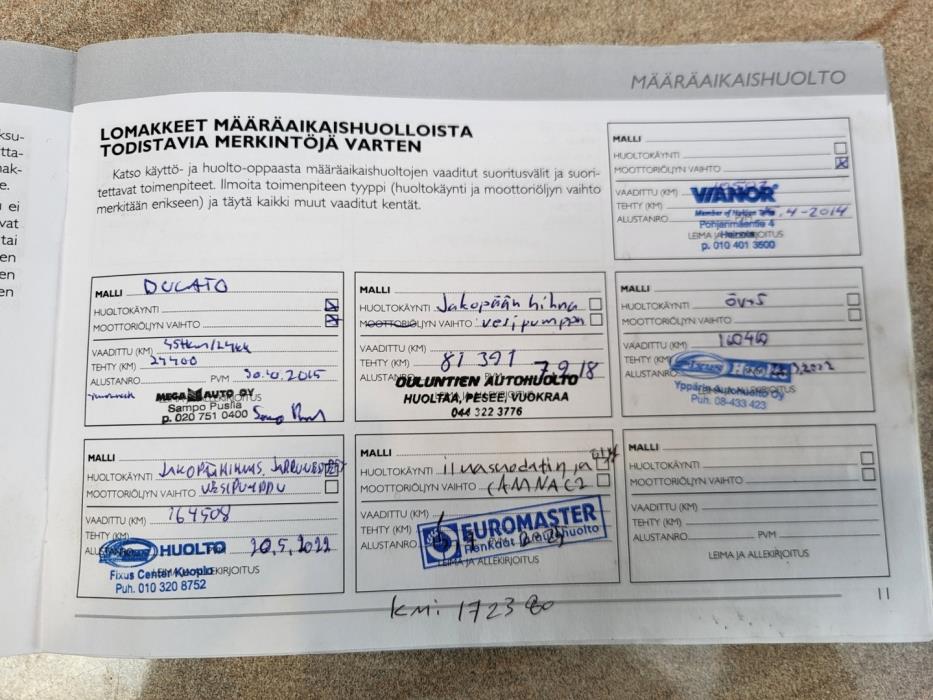 MÄÄRÄAIKAISHUOLTO
LOMAKKEET MÄÄRÄAIKAISHUOLLOISTA
TODISTAVIA MERKINTÖJÄ VARTEN
Katso käyttö- ja huolto-oppaasta määräaikaishuoltojen vaaditut suoritusvälit ja suori-
tettavat toimenpiteet. Ilmoita toimenpiteen tyyppi (huoltokäynti ja moottoriöljyn vaihto
merkitään erikseen) ja täytä kaikki muut vaaditut kentät.
MALLI
HUOLTOKÄYNTI
MOOTTORIÖLJYN VAIHTO
VAADITTU (KM)
VIANOR
TEHTY (KM) 4-2014
ALUSTANRO Pohjanmaentie 4
LEIMA JA ALLEKIRJOITUS
p. 010 401 3500
MALLI DUCATO
HUOLTOKÄYNTI
MOOTTORIÖLJYN VAIHTO
VAADITTU (KM) 45tkm/24kk
TEHTY (KM) 27400
ALUSTANRO PVM 30.10.2015
MEGA AUTO OY
Sampo Pusila
p. 020 751 0400
MALLI
HUOLTOKÄYNTI Jakopään hihna
MOOTTORIÖLJYN VAIHTO vesipumppu
VAADITTU (KM)
TEHTY (KM) 81 391
ALUSTANRO 7.9.18
OULUNTIEN AUTOHUOLTO
HUOLTAA, PESEE, VUOKRAA
044 322 3776
MALLI
HUOLTOKÄYNTI öv+s
MOOTTORIÖLJYN VAIHTO
VAADITTU (KM) 160460
TEHTY (KM)
ALUSTANRO Fixus 2022
Ypparin Autohuolto Oy
Puh. 08-433 423
MALLI
HUOLTOKÄYNTI JAKOPÄÄHIHNA, JARRUNESTE
MOOTTORIÖLJYN VAIHTO VESIPUMPPU
VAADITTU (KM) 164508
TEHTY (KM)
HUOLTO PVM 20.5.2022
Fixus Center Kuopio
Puh. 010 320 8752
MALLI
HUOLTOKÄYNTI ilmasuodatin ja
MOOTTORIÖLJYN VAIHTO
VAADITTU (KM)
TEHTY (KM) EUROMASTER
ALUSTANRO Renkaat autohuolto
LEIMA JA ALLEKIRJOITUS
MALLI
HUOLTOKÄYNTI
MOOTTORIÖLJYN VAIHTO
VAADITTU (KM)
TEHTY (KM)
ALUSTANRO PVM
LEIMA JA ALLEKIRJOITUS
km: 172380
11